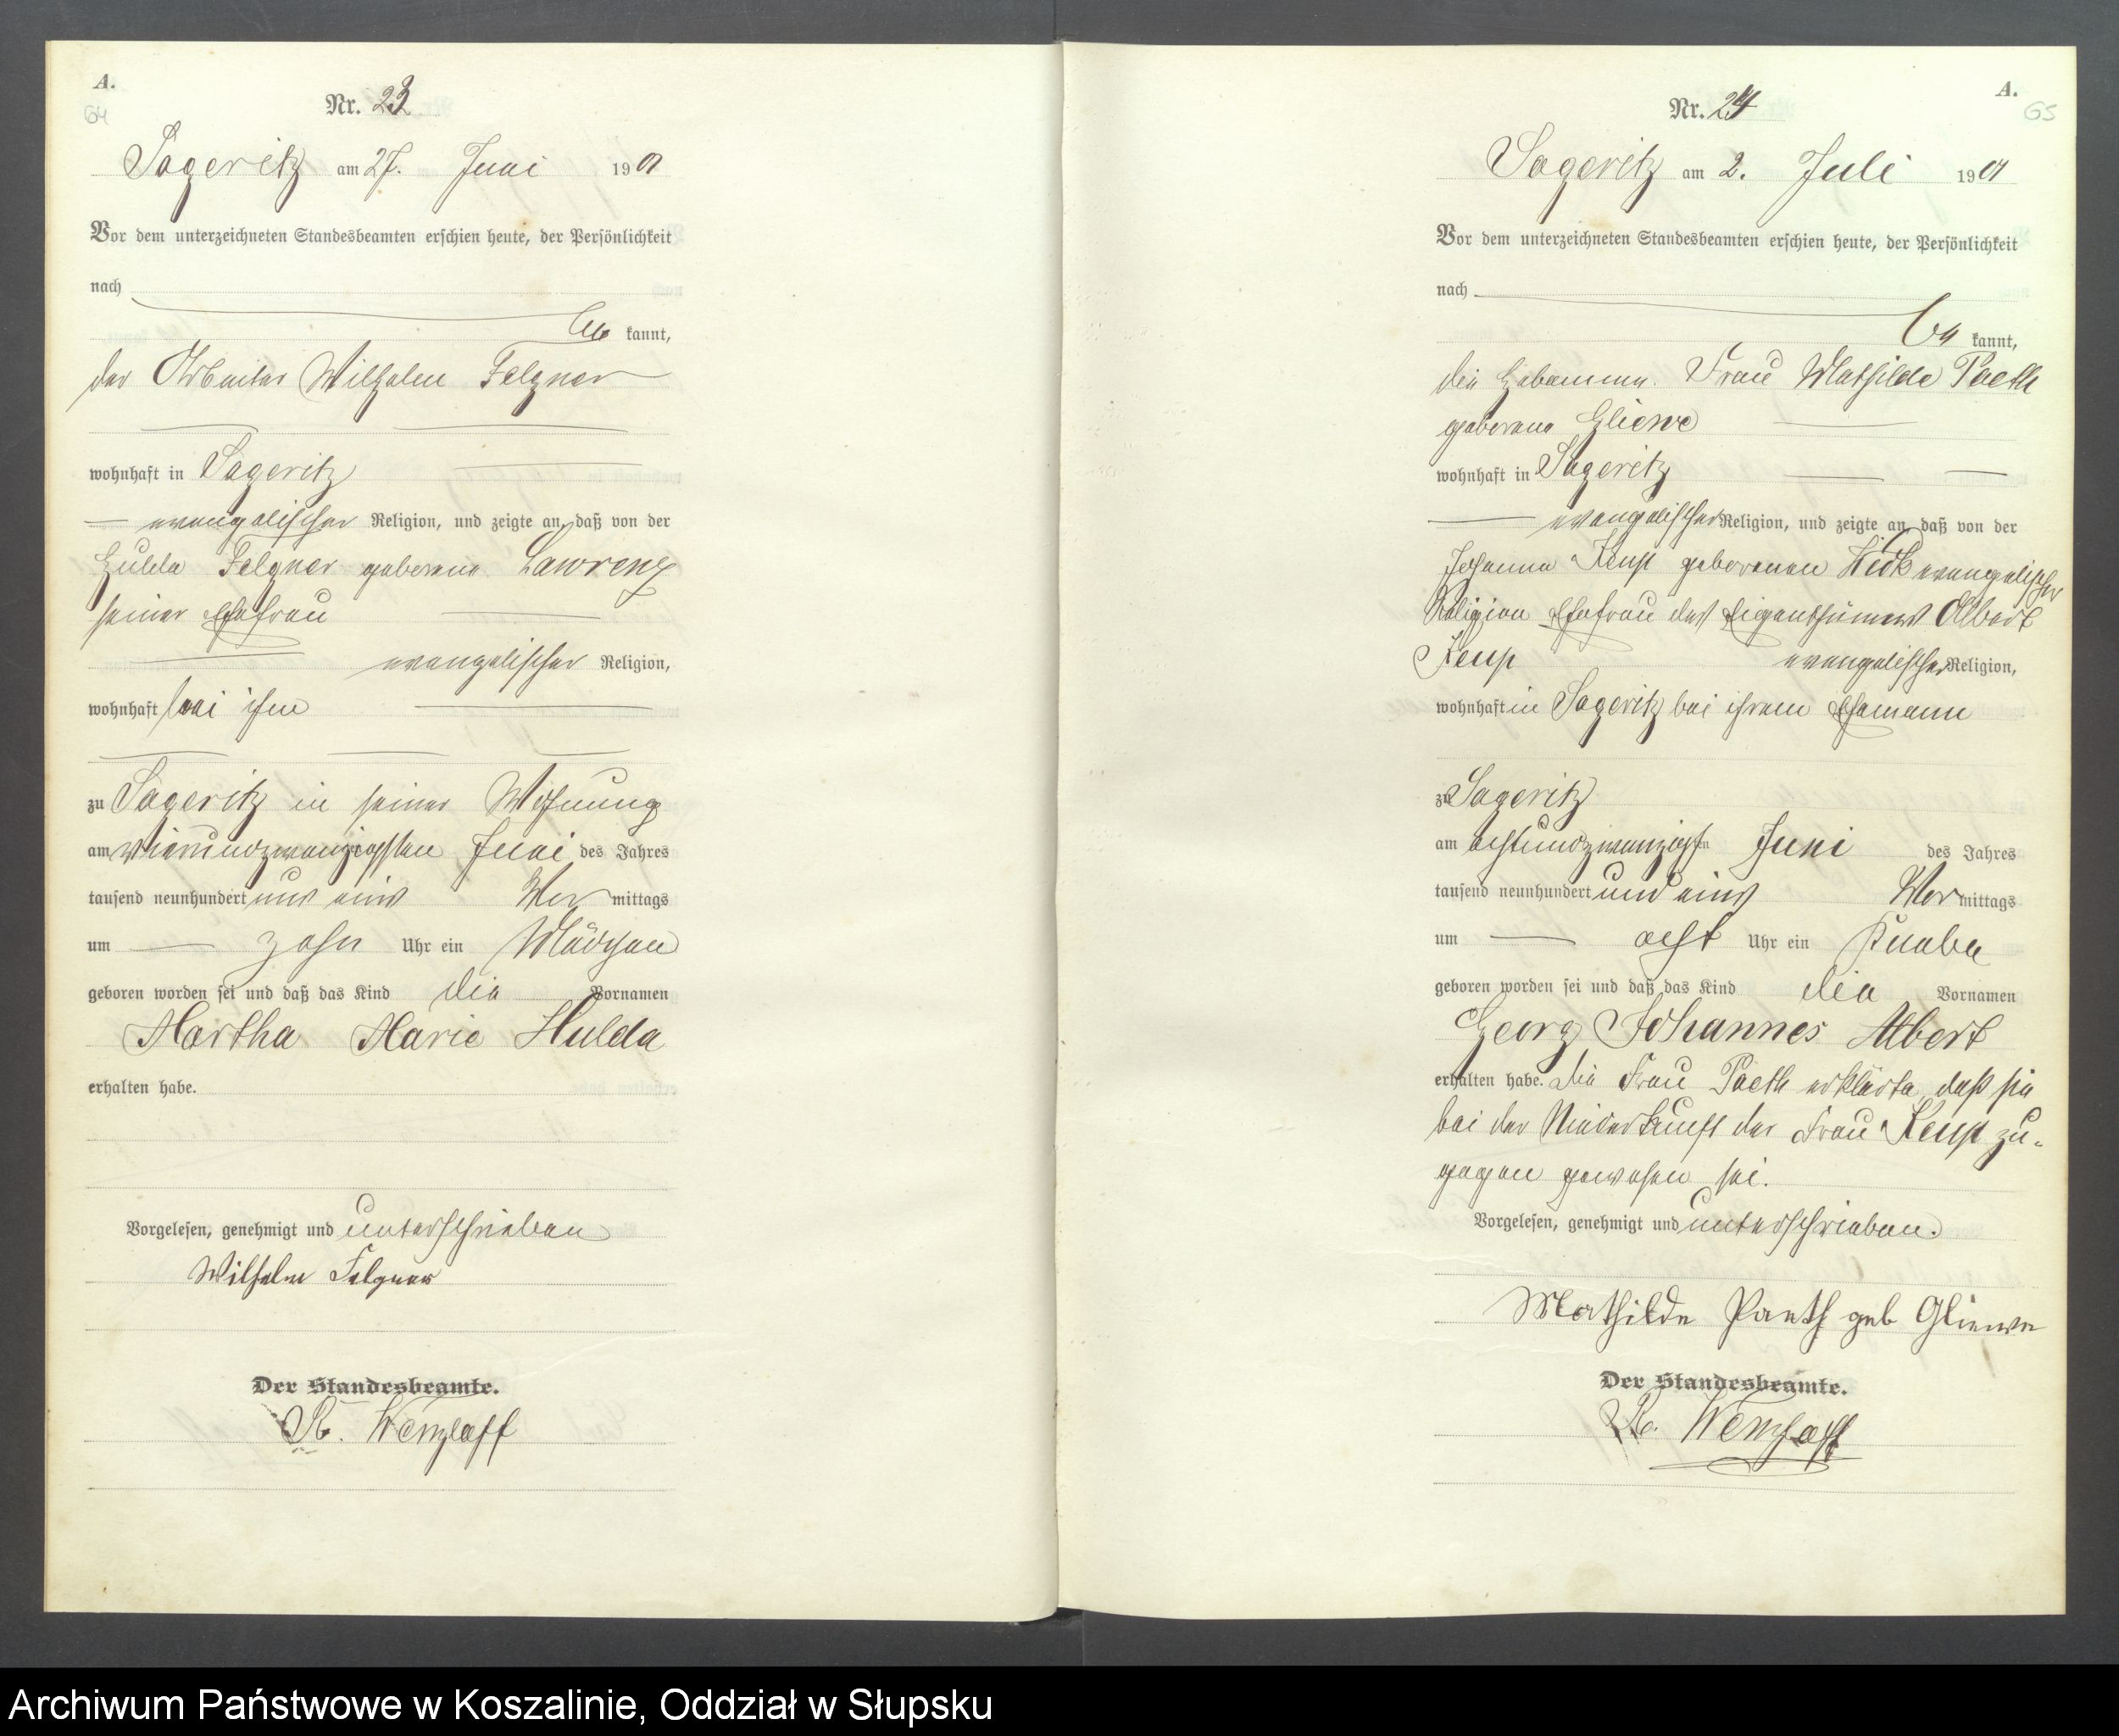 A.
64
Nr. 23
Sageritz am 27. Juni 1901
Vor dem unterzeichneten Standesbeamten erschien heute, der Persönlichkeit
nach
be kannt,
der Arbeiter Wilhelm Felgner
wohnhaft in Sageritz
evangelischer Religion, und zeigte an, daß von der
Hulda Felgner geborene Lawrenz
seiner Ehefrau
evangelischer Religion,
wohnhaft bei ihm
zu Sageritz in seiner Wohnung
am vierundzwanzigsten Juni des Jahres
tausend neunhundert und eins Vor mittags
um zehn Uhr ein Mädchen
geboren worden sei und daß das Kind die Vornamen
Martha Marie Hulda
erhalten habe.
Vorgelesen, genehmigt und unterschrieben
Wilhelm Felgner
Der Standesbeamte.
Wenzlaff
A.
65
Nr. 24
Sageritz am 2. Juli 1901
Vor dem unterzeichneten Standesbeamten erschien heute, der Persönlichkeit
nach
be kannt,
die Hebamme Frau Mathilde Paeth
geborene Gliewe
wohnhaft in Sageritz
evangelischer Religion, und zeigte an, daß von der
Johanna Keup geborenen evangelischer
Religion Ehefrau des Eigenthümers Albert
Keup evangelischer Religion,
wohnhaft in Sageritz bei ihrem Ehemann
zu Sageritz
am achtundzwanzigsten Juni des Jahres
tausend neunhundert und eins Vor mittags
um acht Uhr ein Knabe
geboren worden sei und daß das Kind die Vornamen
Georg Johannes Albert
erhalten habe. Die Frau Paeth erklärte, daß sie
bei der Niederkunft der Frau Keup zu-
gegen gewesen sei.
Vorgelesen, genehmigt und unterschrieben.
Mathilde Paeth geb Gliewe
Der Standesbeamte.
Wenzlaff
Archiwum Państwowe w Koszalinie, Oddział w Słupsku